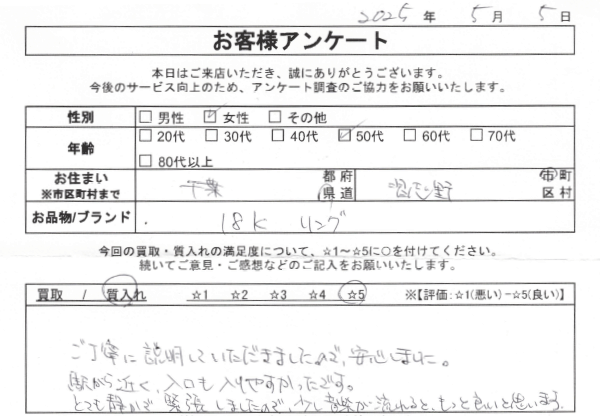 2025 年 5 月 5 日
お客様アンケート
本日はご来店いただき、誠にありがとうございます。
今後のサービス向上のため、アンケート調査のご協力をお願いいたします。
性別 □ 男性 ☑ 女性 □ その他
年齢 □ 20代 □ 30代 □ 40代 ☑ 50代 □ 60代 □ 70代
□ 80代以上
お住まい ※市区町村まで 千葉 都府県道 習志野 市町区村
お品物/ブランド 18K リング
今回の買取・質入れの満足度について、☆1～☆5に○を付けてください。
続いてご意見・ご感想などのご記入をお願いいたします。
買取 / 質入れ ☆1 ☆2 ☆3 ☆4 ☆5 ※【評価:☆1(悪い)－☆5(良い)】
ご丁寧に説明していただきましたので、安心しました。
駅から近く、入口も入りやすかったです。
とても静かで緊張しましたので、少し音楽が流れると、もっと良いと思います。